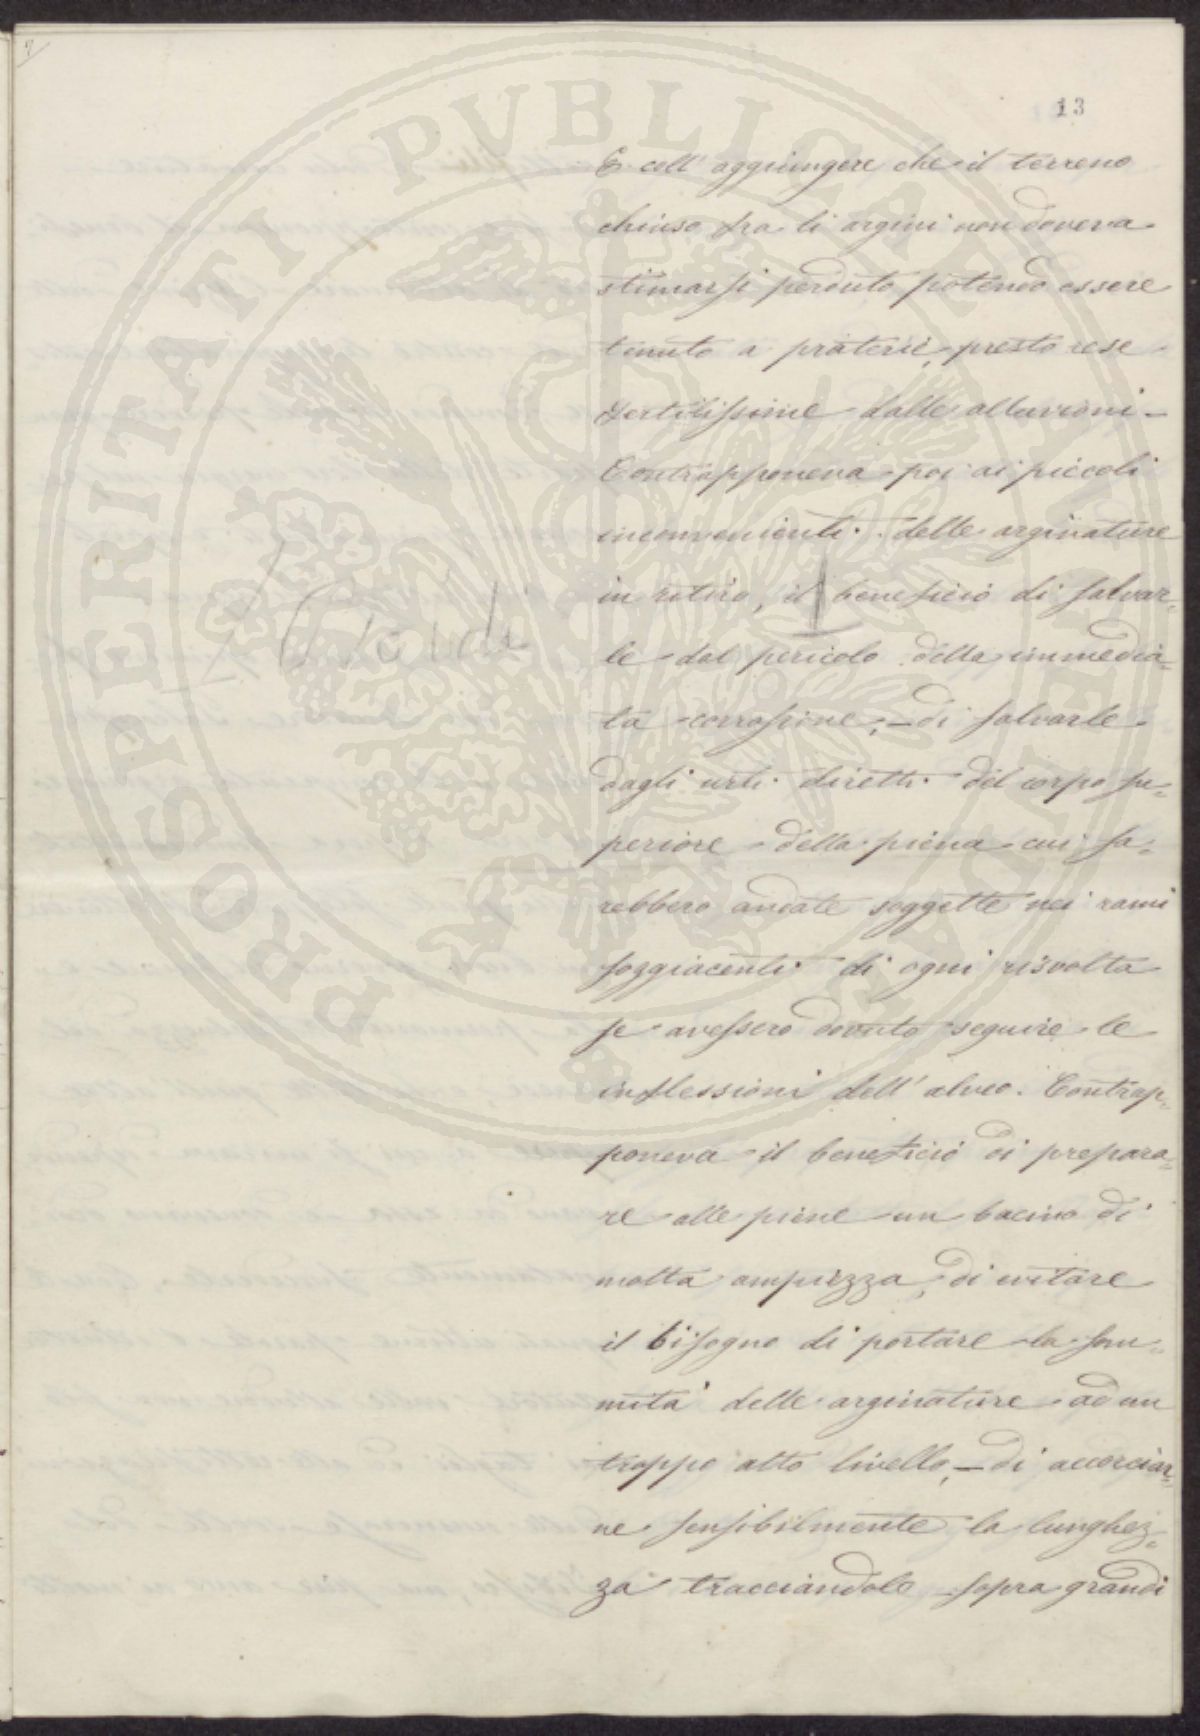 13
E coll' aggiungere che il terreno
chiuso fra li argini non doveva
stimarsi perduto potendo essere
tenuto a praterie, presto rese
fertilissime dalle alluvioni –
Contrapponeva poi ai piccoli
inconvenienti delle arginature
in ritiro, il beneficio di salvar=
le dal pericolo della immedia=
ta corrosione, – di salvarle
dagli urti diretti del corpo su=
periore della piena cui sa=
rebbero andate soggette nei rami
soggiacenti di ogni risvolta
se avessero dovuto seguire le
inflessioni dell' alveo. Contrap=
poneva il beneficio di prepara=
re alle piene un bacino di
molta ampiezza, di evitare
il bisogno di portare la som=
mità delle arginature ad un
troppo alto livello, – di accorciar=
ne sensibilmente la lunghez=
za tracciandole sopra grandi
PROSPERITATI PUBLICAE